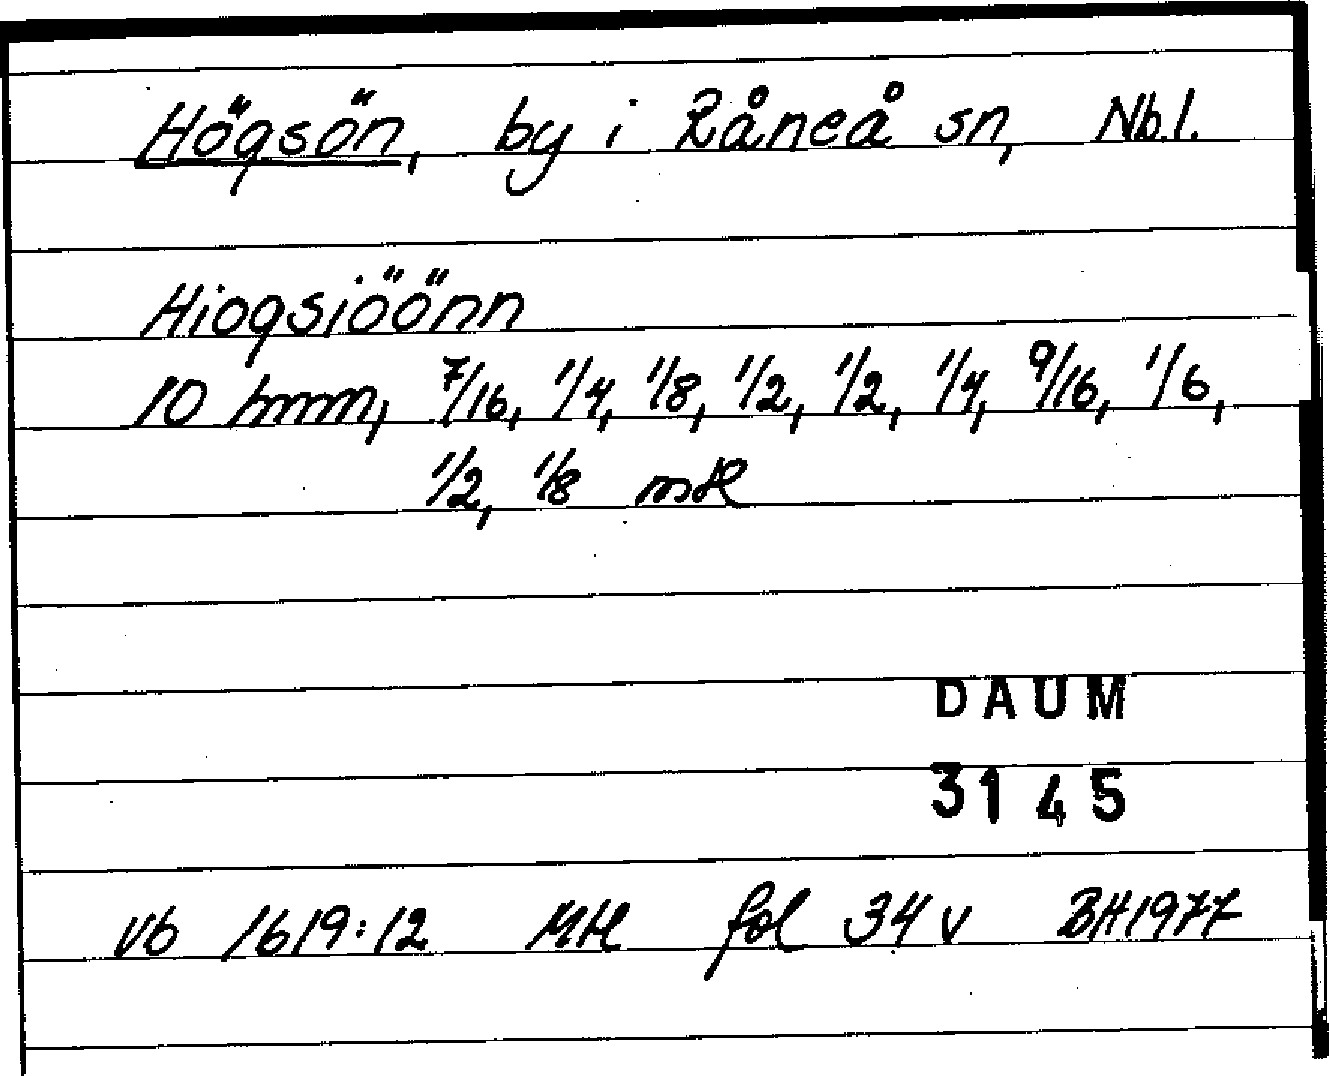 Högsön, by i Råneå sn, Nb.l.
Hiogsiöönn
10 hmm, 7/16, 1/4, 1/8, 1/2, 1/2, 1/4, 9/16, 1/6,
1/2, 1/8 mtl
DAUM
3145
Vb 1619:12 Mtl fol 34 v BH1977